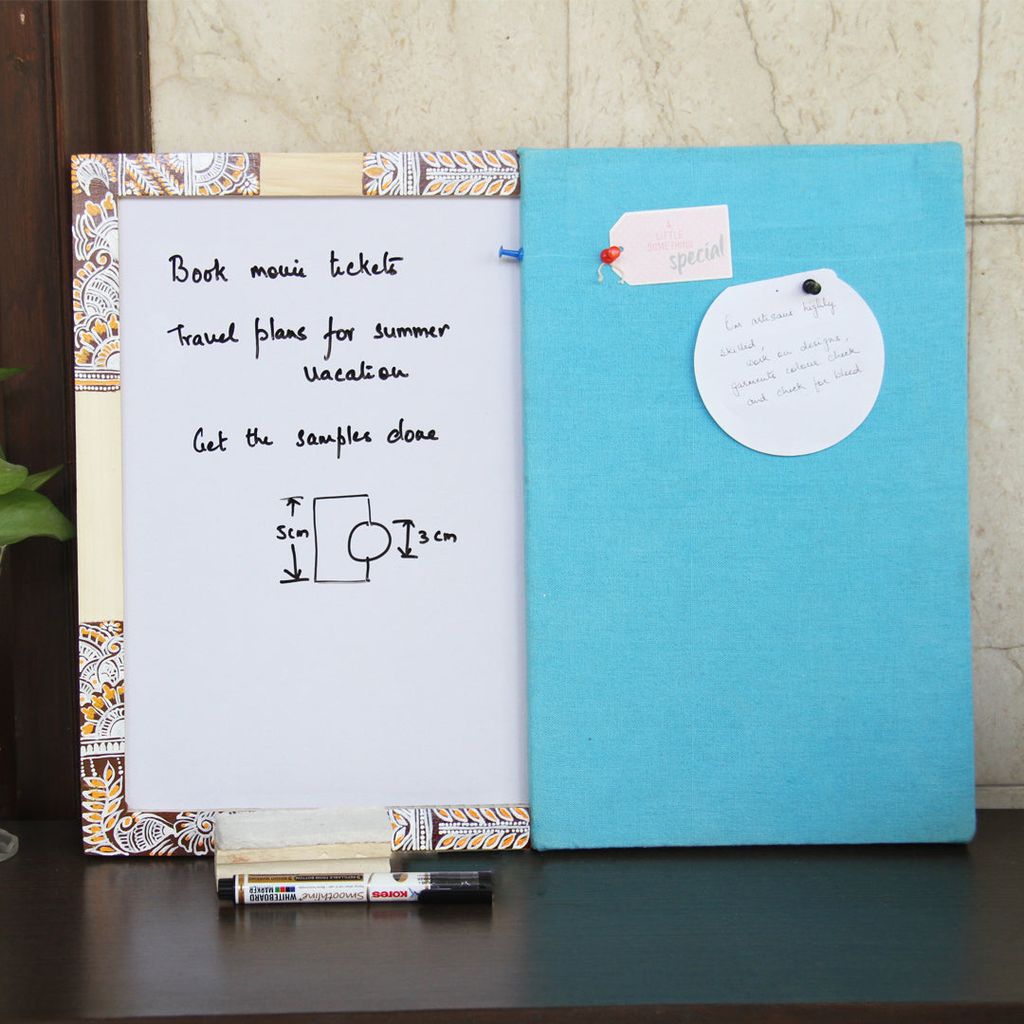 Book movie tickets
Travel plans for summer
vacation
Get the samples done
5cm
3 cm
A
LITTLE
SOMETHING
special
Our artisans highly
skilled,
work on designs,
garments colour check
and check for bleed
kores
Smoothline
WHITEBOARD
MARKER